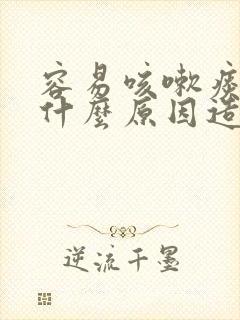 容易咳嗽痰
什麼原因造
逆流千墨